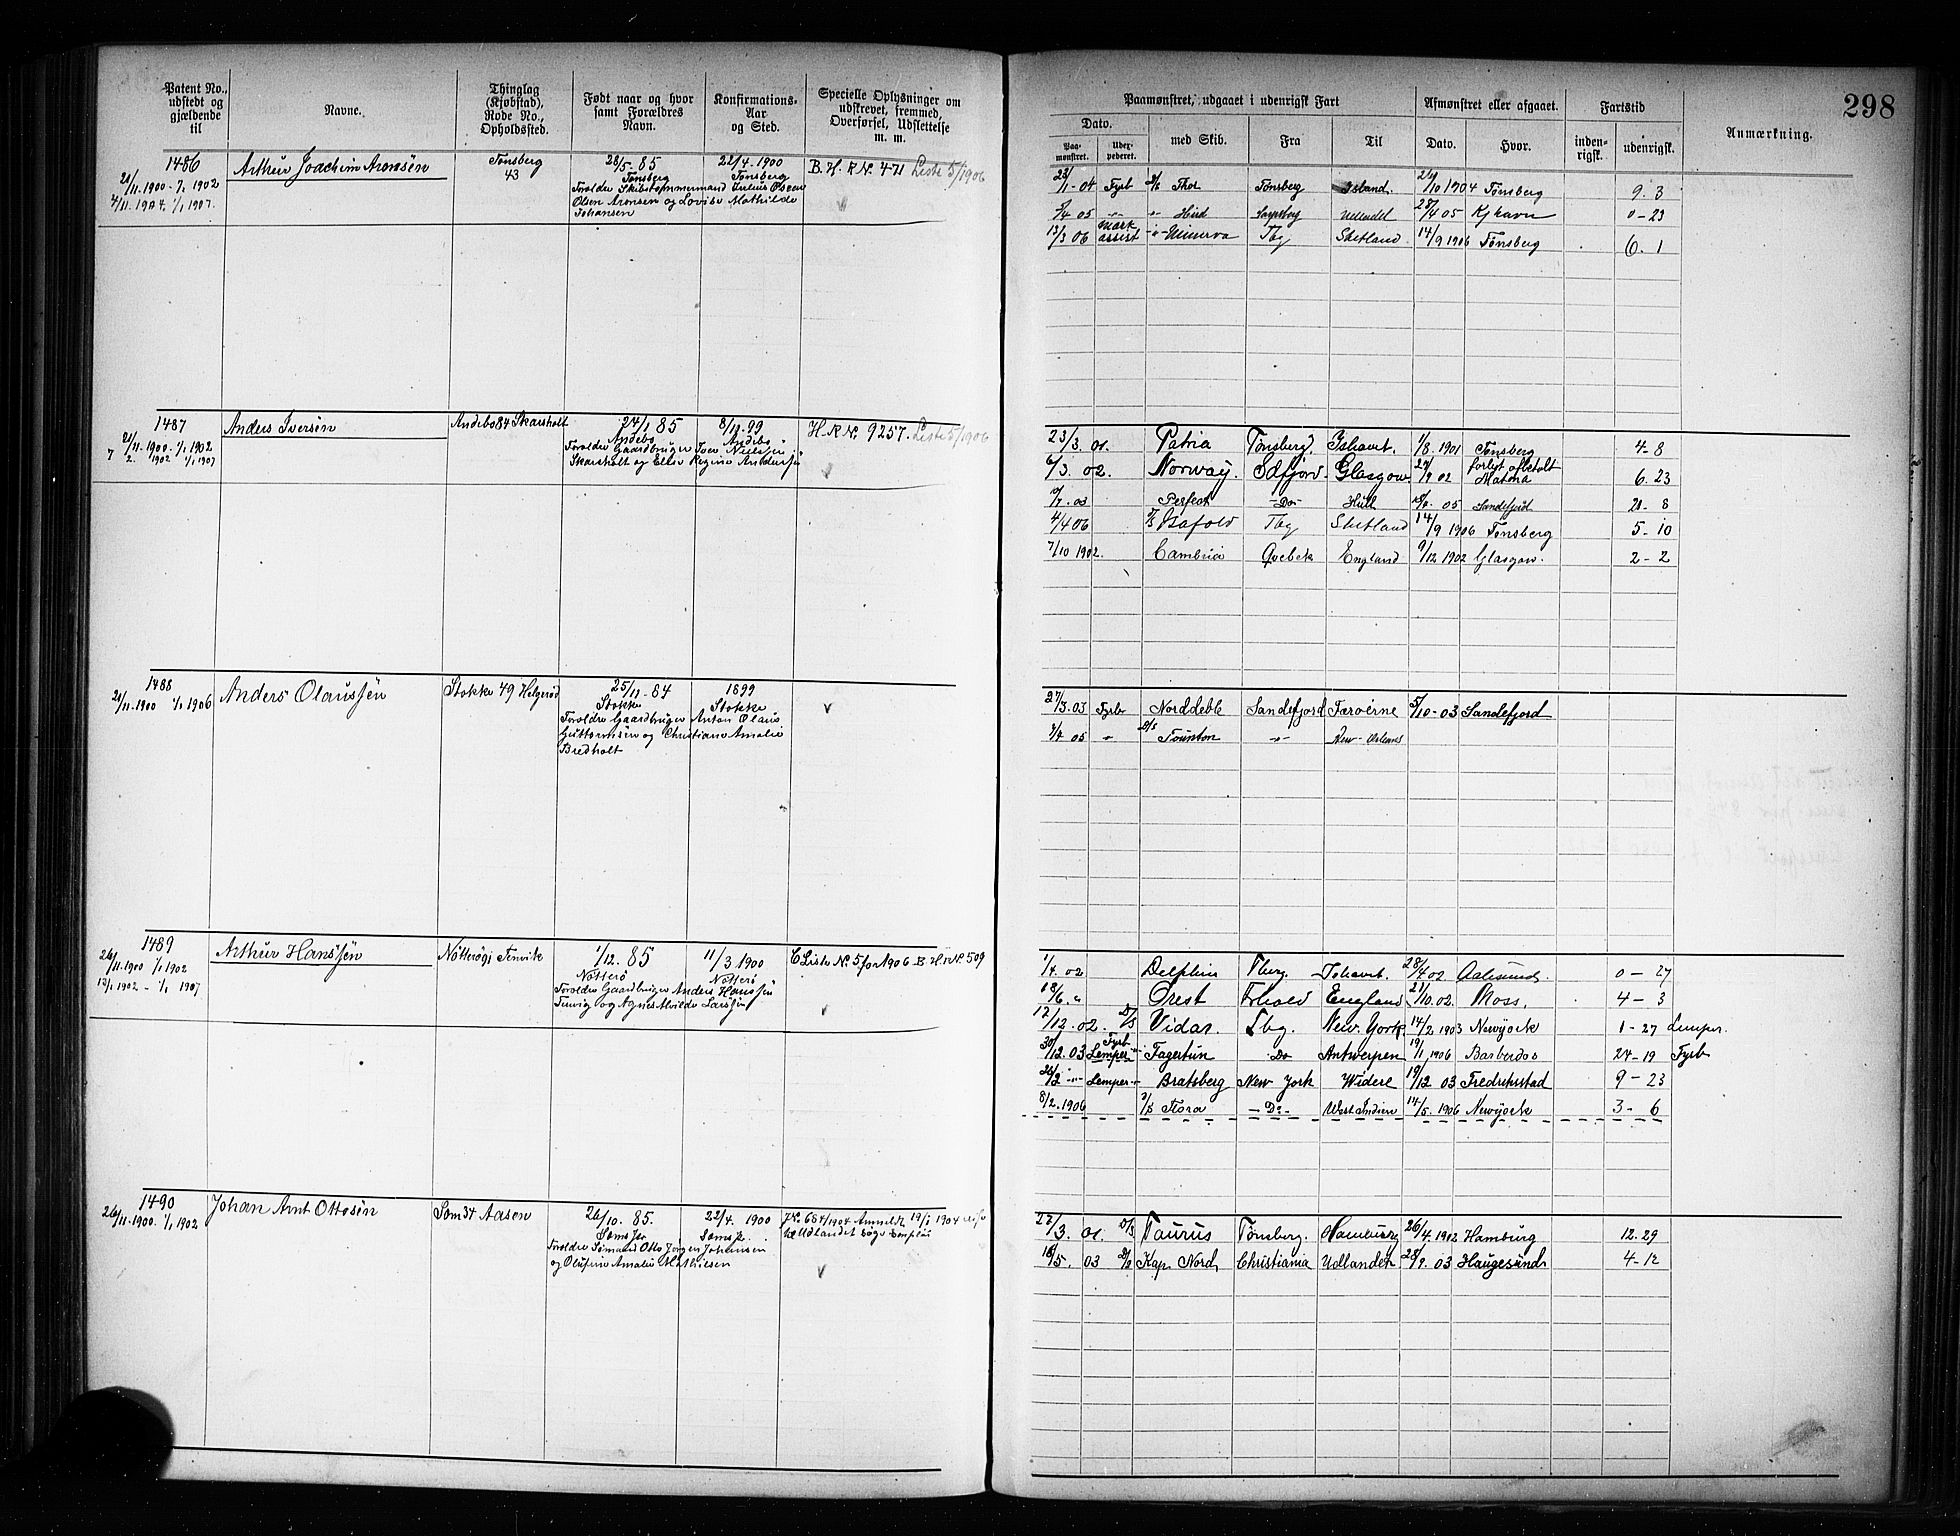 Patent No., udstedt og gjældende til
Navne.
Thinglag (Kjøbstad), Rode No., Opholdssted.
Født naar og hvor samt Forældres Navn.
Konfirmations-Aar og Sted.
Specielle Oplysninger om udskrevet, fremmed, Overførsel, Udslettelse m. m.
1486
21/11.1900 - 1/1 1902
4/11.1904. 1/1 1907.
Arthur Joachim Aronsen
Tønsberg
43
28/5 - 85
Tønsberg
22/4. 1900
Tønsberg
Forældre Skibstømmermand Julius Oscar
Olsen Aronsen og Lovise Mathilde
Johansen
B. H. R. N. 471 Liste 5/1906
1487
21/11.1900 - 1/1 1902
1902 1/1 1907
Anders Iversen
Andebo 84 Skarsholt
24/1 85
Andebo
8/10 99
Andebo
Forældre Gaardbruger Iver Nielsen
Skarsholt og Elise Regine Andersen
H. R. N. 9257. Liste 5/1906
1488
21/11.1900 1/1 1906
Anders Olaussen
Stokke 49 Helgerød
25/11 - 84
Stokke
1899
Stokke
Forældre Gaardbruger Anton Olaus
Guttormsen og Christiane Amalie
Bredholt
1489
26/11.1900 1/1 1902
12/1 1902 - 1/1 1907
Arthur Hanssen
Nøtterø Tenvik
1/12. 85
Nøtterø
11/3 1900
Nøtterø
Forældre Gaardbruger Anders Hanssen
Tenvig og Agnes Alvilde Larssen
Liste N. 5 for 1906 B. H. R. N. 509
1490
26/11.1900. 1/1 1902
Johan Arnt Ottosen
Sem 34 Aasen
26/10. 85.
Sems Pr
22/4. 1900
Sems Pr.
Forældre Sømand Otto Jørgen Johansen
og Olufine Amalie Mathiesen
J. N. 684/1904 Anmeldt 19/1 1904
298
Paamønstret, udgaaet i udenrigsk Fart
Afmønstret eller afgaaet.
Fartstid
Anmærkning.
Dato.
Paamønstret.
Udexpederet.
med Skib.
Fra
Til
Dato.
Hvor.
indenrigsk.
udenrigsk.
23/1 - 04 Fyrb Thor Tønsberg Island. 21/10 1904 Tønsberg 9. 3
5/4 05 Hird Sarpsborg 28/4 05 Kjhavn 0 - 23
13/3 06 assist Minerva Tbg Shetland 14/9 1906 Tønsberg 6. 1
23/3. 01. Patria Tønsberg. Ishavet. 1/8. 1901 Tønsberg 4 - 8
6/3. 02. Norway. Sdfjord. Glasgow 29/9 02 6. 23
03 Perfect - Do - Hull 05 Sandefjord 20 - 8
4/4 06 Isafold Tbg Shetland 14/9 1906 Tønsberg 5 - 10
7/10 1902. Cambria Qvebek England 9/12 1902 Glasgow. 2 - 2
27/3. 03 Fyrb Norddeble Sandefjord Færøerne 5/10 - 03 Sandefjord
05 Taunton New-Orleans
1/4. 02 Delphin Tberg. Ishavet. 28/4 02. Aalesund. 0 - 27
18/6. Orest Frhald England 21/10. 02. Moss. 4 - 3
17/12. 02. D/S Vidar. Tbg. New York. 14/2 1903 Newyork 1 - 27 Lemper.
30/12. 03 Fyrb Lemper Fagertun Do Antwerpen 19/1 1906 Barbados 24 - 19 Fyrb
26/2 Lemper Bratsberg New York Videre 19/12 03 Fredrikstad 9 - 23
8/2. 1906 D/S Flora - Do - West Indien 14/5. 1906 Newyork 3 - 6
27/3. 01. D/S Taurus Tønsberg. Hamburg 26/4. 1902 Hamburg 12. 29
16/5. 03 Kap Nord Christiania Udlandet 28/9. 03 Haugesund 4 - 12